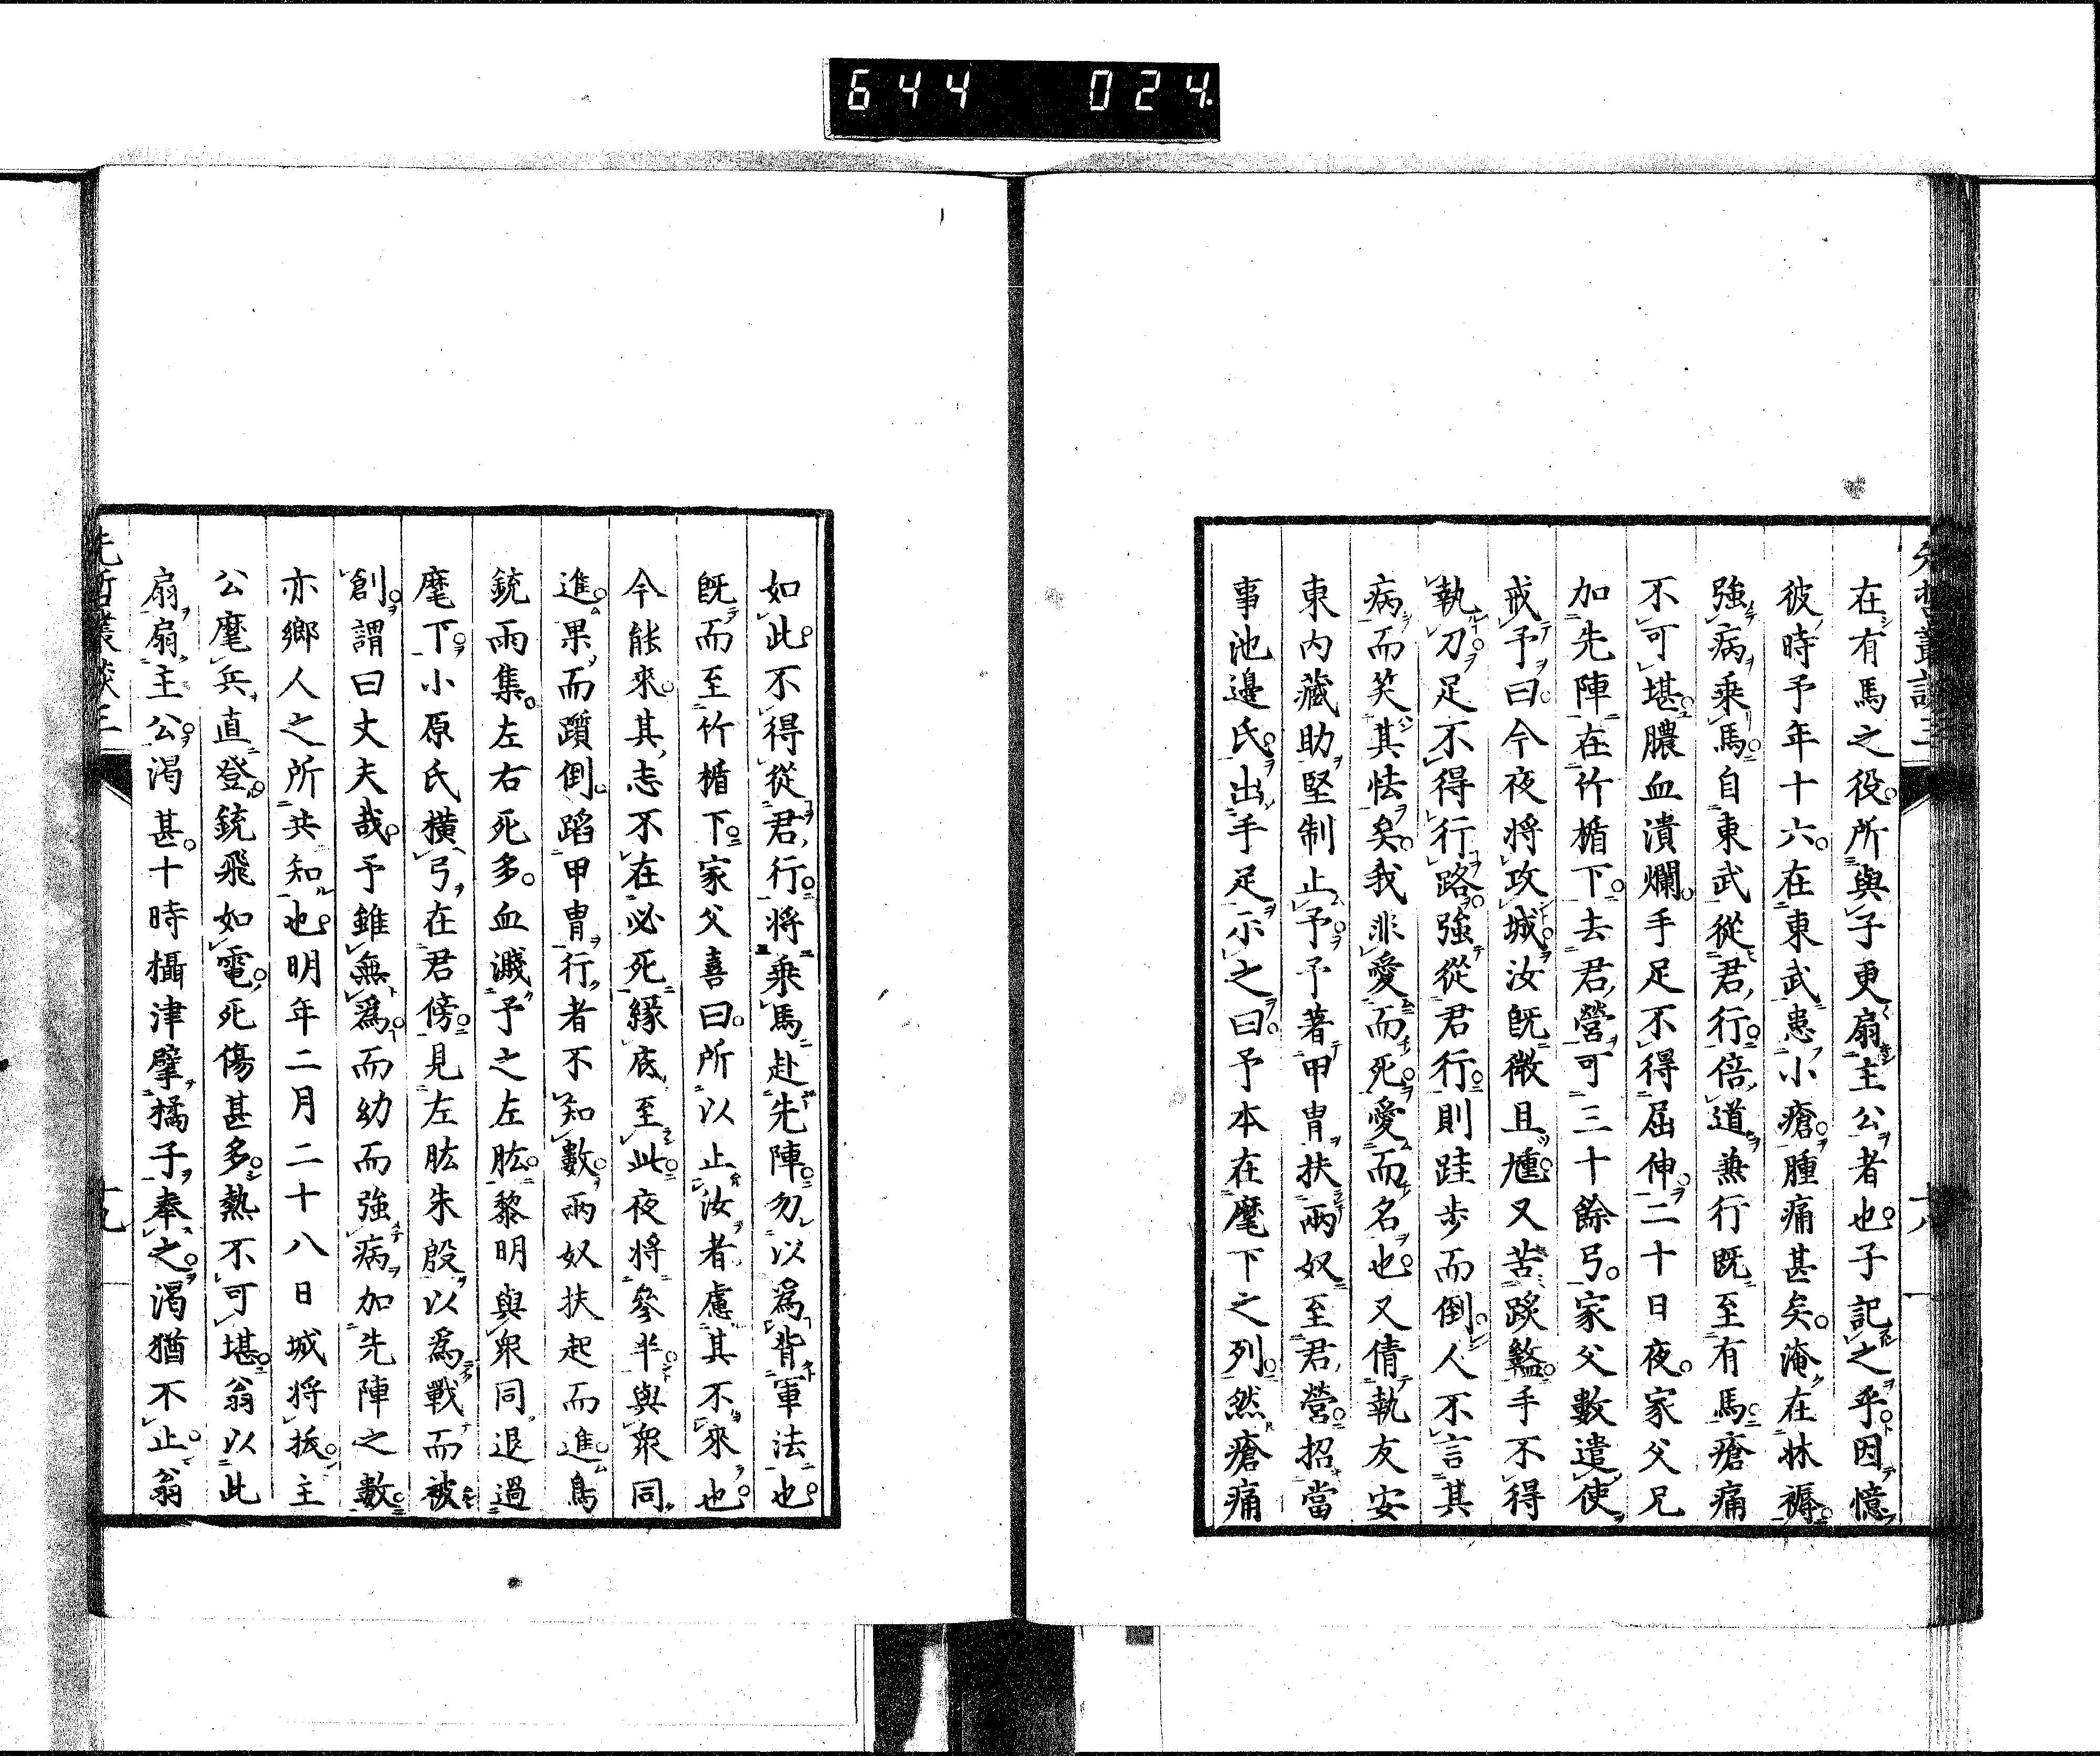 644 024
先哲叢談三
在有馬之役所與子更扇主公者也子記之乎因憶
彼時予年十六在東武患小瘡腫痛甚矣淹在牀褥
強病乘馬自東武從君行倍道兼行既至有馬瘡痛
不可堪膿血潰爛手足不得屈伸二十日夜家父兄
加先陣在竹楯下去君營可三十餘弓家父數遣使
戒予曰今夜將攻城汝既微且尰又苦踥盭手不得
執刀足不得行路強從君行則跬步而倒人不言其
病而笑其怯矣我非愛而死愛而名也又倩執友安
東内藏助堅制止予予著甲冑扶兩奴至君營招當
事池邊氏出手足示之曰予本在麾下之列然瘡痛
十八
如此不得從君行將乘馬赴先陣勿以為背軍法也
既而至竹楯下家父喜曰所以止汝者慮其不來也
今能來其志不在必死緣底至此夜將參半與衆同
進果而躓倒蹈甲冑行者不知數兩奴扶起而進鳥
銃雨集左右死多血濺予之左肱黎明與衆同退過
麾下小原氏橫弓在君傍見左肱朱殷以為戰而被
創謂曰丈夫哉予雖無為而幼而強病加先陣之數
亦鄉人之所共知也明年二月二十八日城將拔主
公麾兵直登銃飛如電死傷甚多熱不可堪翁以此
扇扇主公渴甚十時攝津擘橘子奉之渴猶不止翁
先哲叢談三
十九